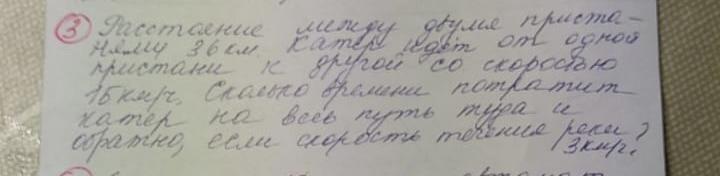 ③ Расстояние между двумя приста-
нями 36 км. Катер идёт от одной
пристани к другой со скоростью
15 км/ч. Сколько времени потратит
катер на весь путь туда и
обратно, если скорость течения реки?
3 км/ч.